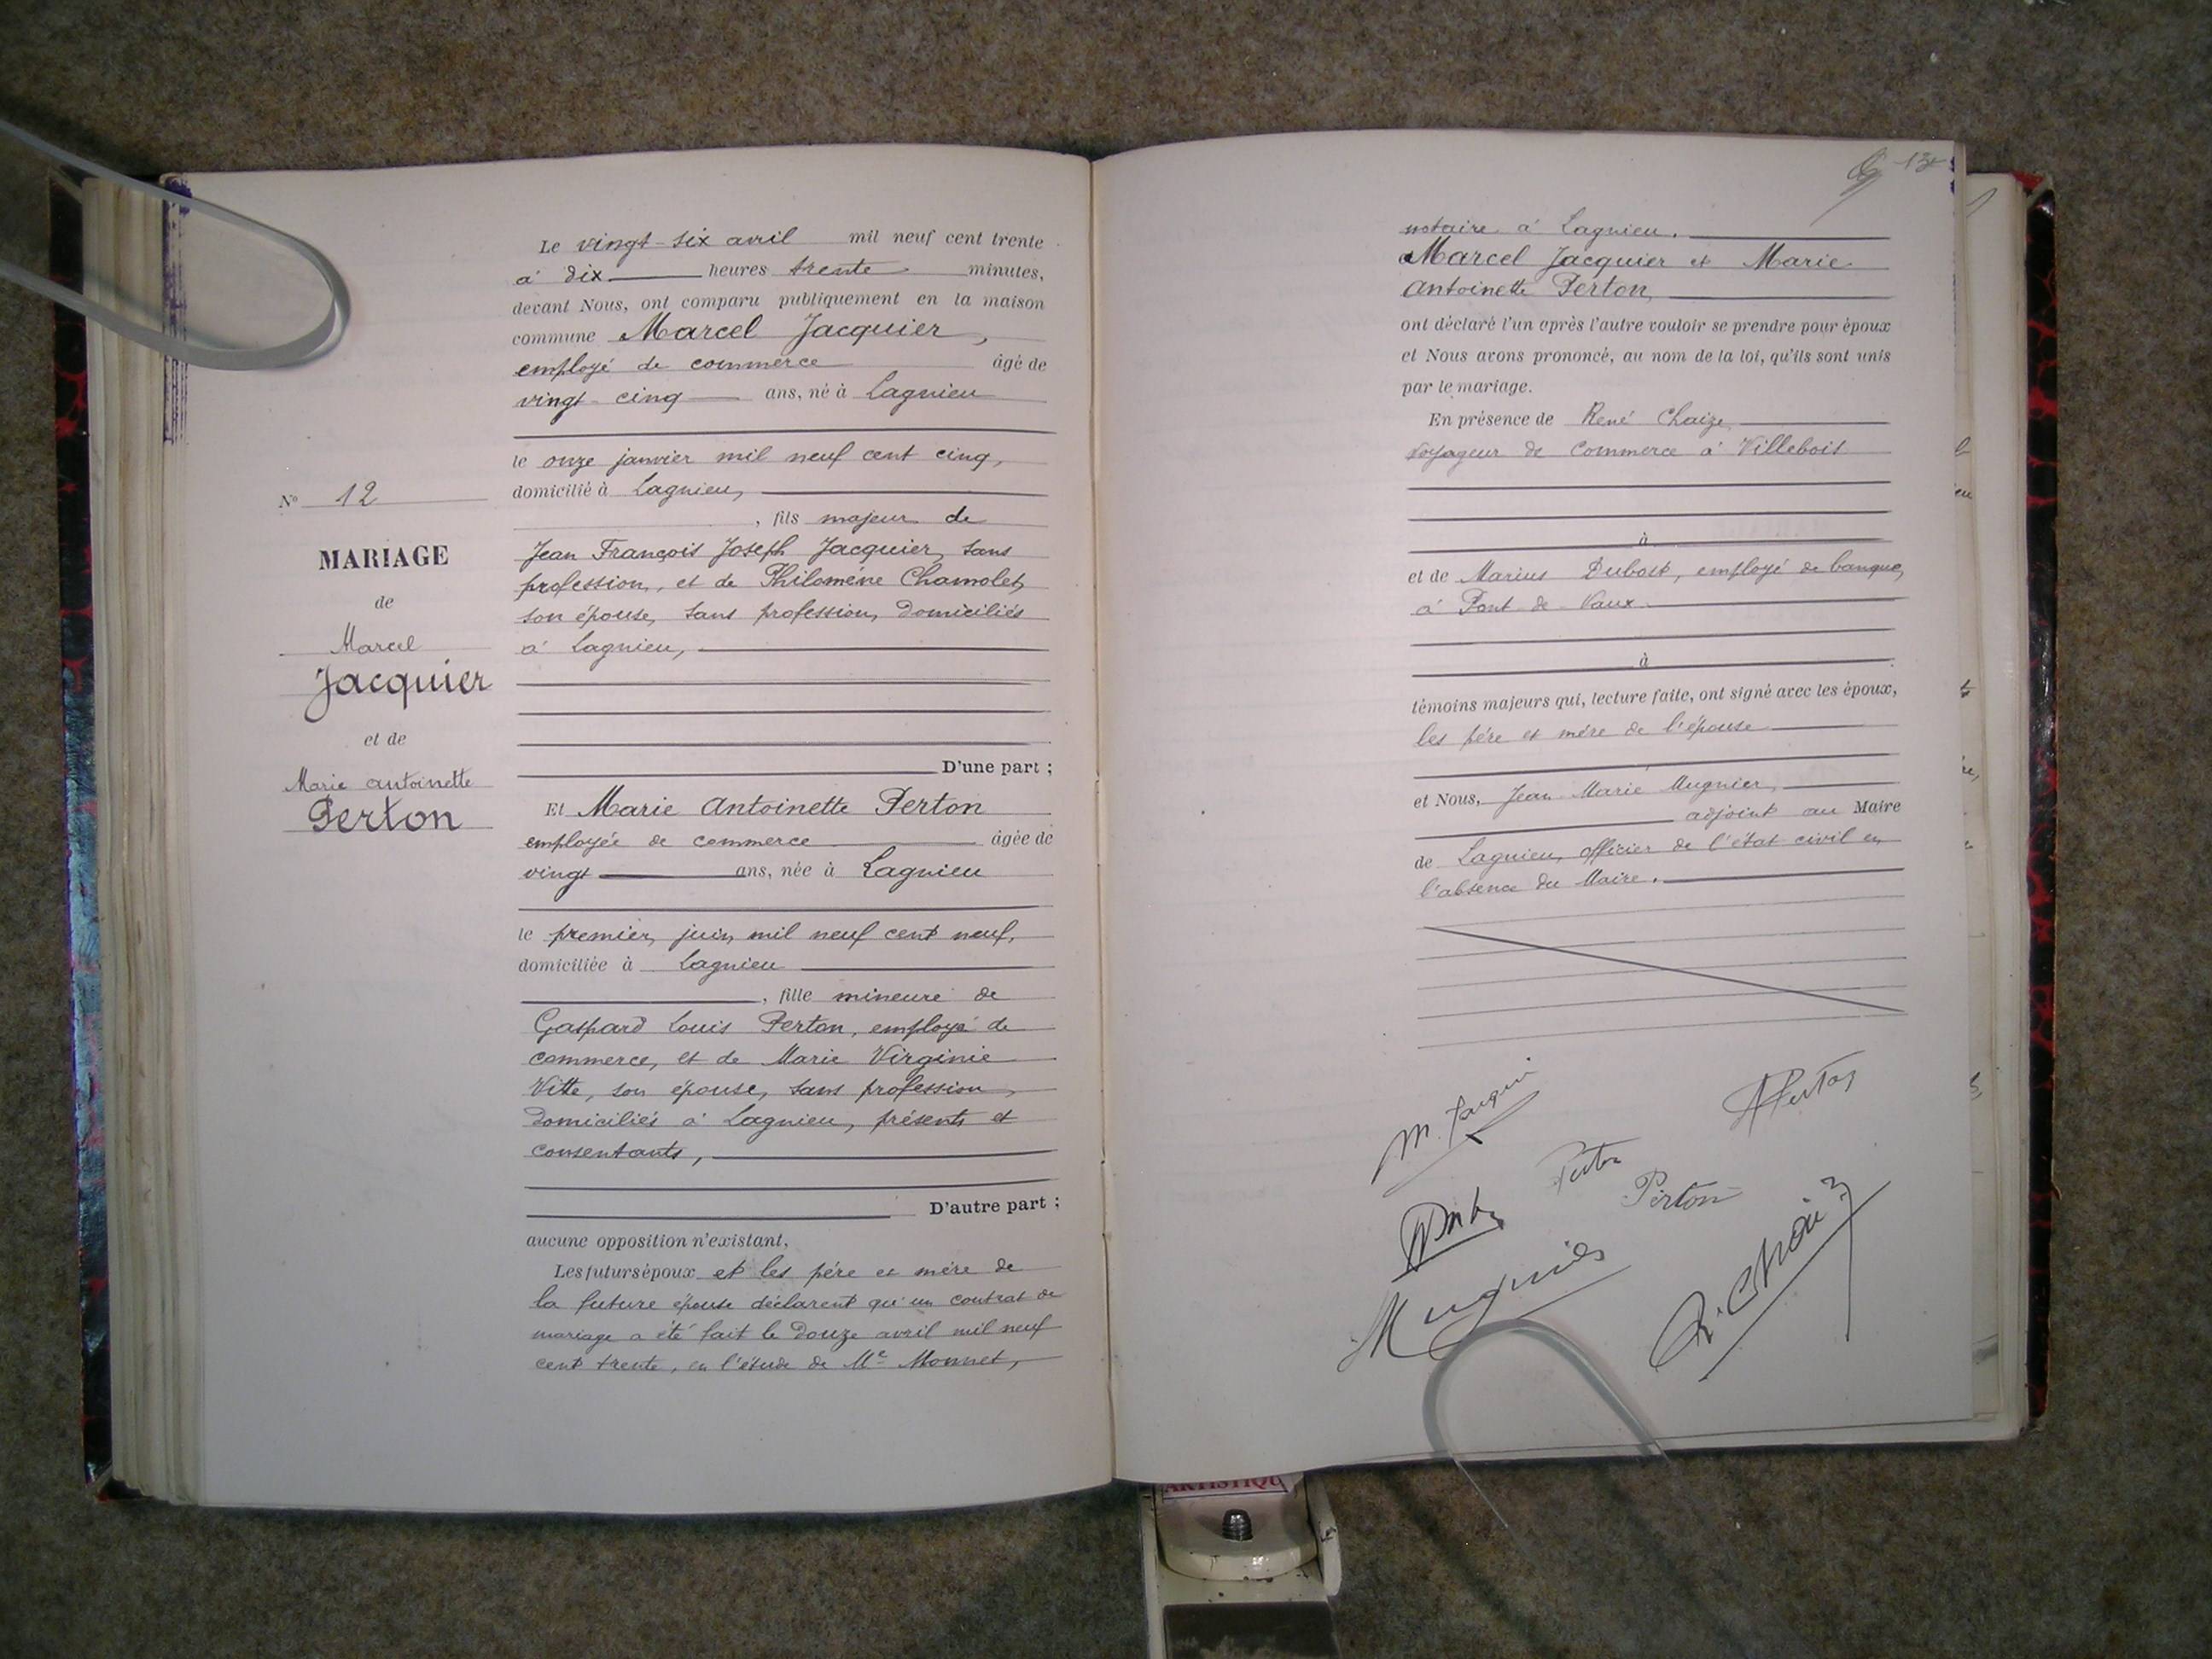 Le vingt-six avril mil neuf cent trente
à dix heures trente minutes,
devant Nous, ont comparu publiquement en la maison
commune Marcel Jacquier,
employé de commerce âgé de
vingt-cinq ans, né à Lagnieu
le onze janvier mil neuf cent cinq,
domicilié à Lagnieu,
, fils majeur de
Jean François Joseph Jacquier, sans
profession, et de Philomène Chamolet,
son épouse, sans profession, domiciliés
à Lagnieu,
D'une part ;
Et Marie Antoinette Perton
employée de commerce âgée de
vingt ans, née à Lagnieu
le premier juin mil neuf cent neuf,
domiciliée à Lagnieu
, fille mineure de
Gaspard Louis Perton, employé de
commerce, et de Marie Virginie
Vitte, son épouse, sans profession,
domiciliés à Lagnieu, présents et
consentants,
D'autre part ;
aucune opposition n'existant,
Les futurs époux et les père et mère de
la future épouse déclarent qu'un contrat de
mariage a été fait le douze avril mil neuf
cent trente, en l'étude de Me Monnet,
No 12
MARIAGE
de
Marcel
Jacquier
et de
Marie antoinette
Perton
notaire à Lagnieu.
Marcel Jacquier et Marie
Antoinette Perton,
ont déclaré l'un après l'autre vouloir se prendre pour époux
et Nous avons prononcé, au nom de la loi, qu'ils sont unis
par le mariage.
En présence de René Chaize
voyageur de commerce à Villebois
à
et de Marius Dubost, employé de banque,
à Pont-de-Vaux
à
témoins majeurs qui, lecture faite, ont signé avec les époux,
les père et mère de l'épouse
et Nous, Jean Marie Mugnier,
adjoint au Maire
de Lagnieu, officier de l'état civil en
l'absence du Maire.
M. Jacquier
A Perton
Perton
Perton
Mugnier
R. Chaize
ARTISTIQU